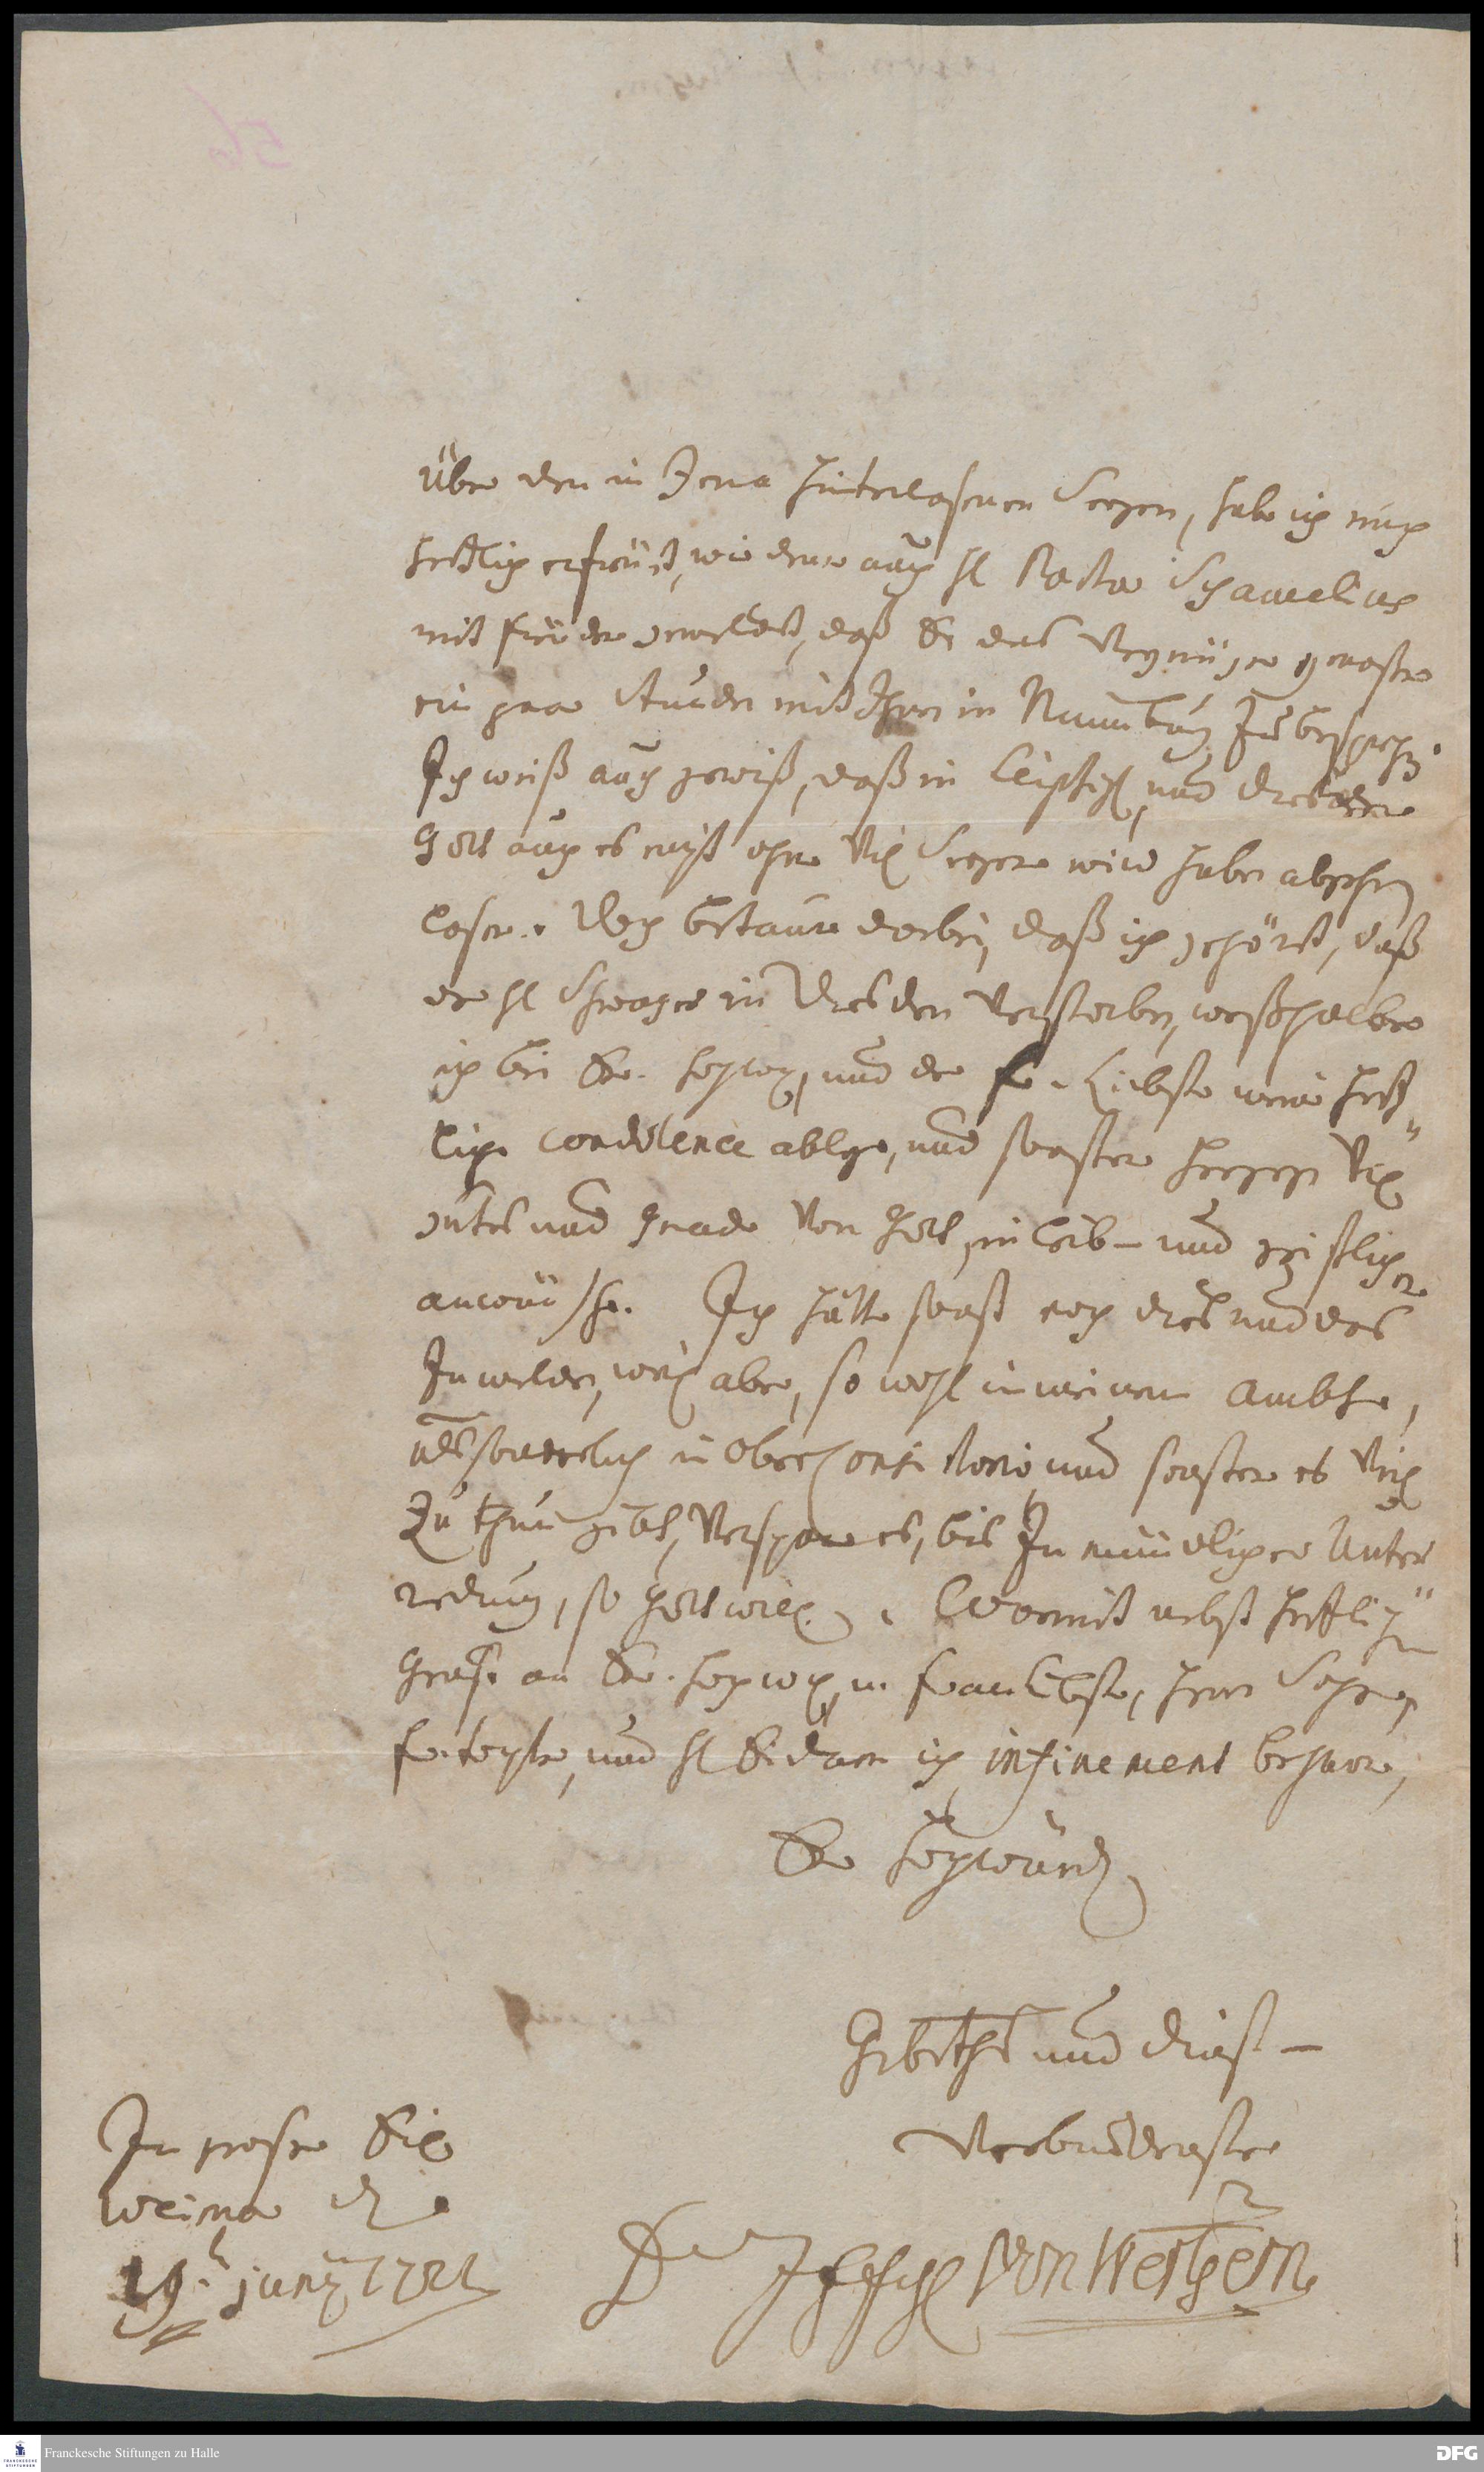 über den in Jena hinterlaßenen Seegen, habe ich mich
hertzlich erfreüet, wie denn auch H. Pastor Schamelius
mit freuden gemeldet, daß Er das Vergnügen genoßen
ein paar Stunden mit Ihnen in Naumburg zu besprechen.
Ich weiß auch gewiß, daß in Leipzig, und Dresden
Gott auch es nicht ohne viel Seegen wird haben abgehen
laßen. Doch betaure darbei, daß ich gehöret, daß
der H. Schwager in Dresden verstorben, weßhalber
ich bei Ew. Hochw. und der Fr. Liebste meine hertz"
liche condolence ablege, und sonsten hergegen viel
gutes und Gnade von Gott, in leib- und geistlichen
anwünsche. Ich hätte sonst noch dies und das
zu melden, weil aber, so wohl in meinem Ambte,
absonderlich in Ober Consistorio, und sonsten es viel
zu thun gibet, verspare es, bis zu mündlicher Unter
redung, so Gott will. Womit nebst hertzlichen
Gruß an Ew. Hochw. u. Frau Liebste, Herrn Sohn,
Fr. Tochter, und H. infiniment beharre,
Ew Hochwürd.
Gebeths und dienst-
Verbundenster
von Werthern
In großer Eil
Weimar d.
19. Junij 1721
56
Franckesche Stiftungen zu Halle
DFG